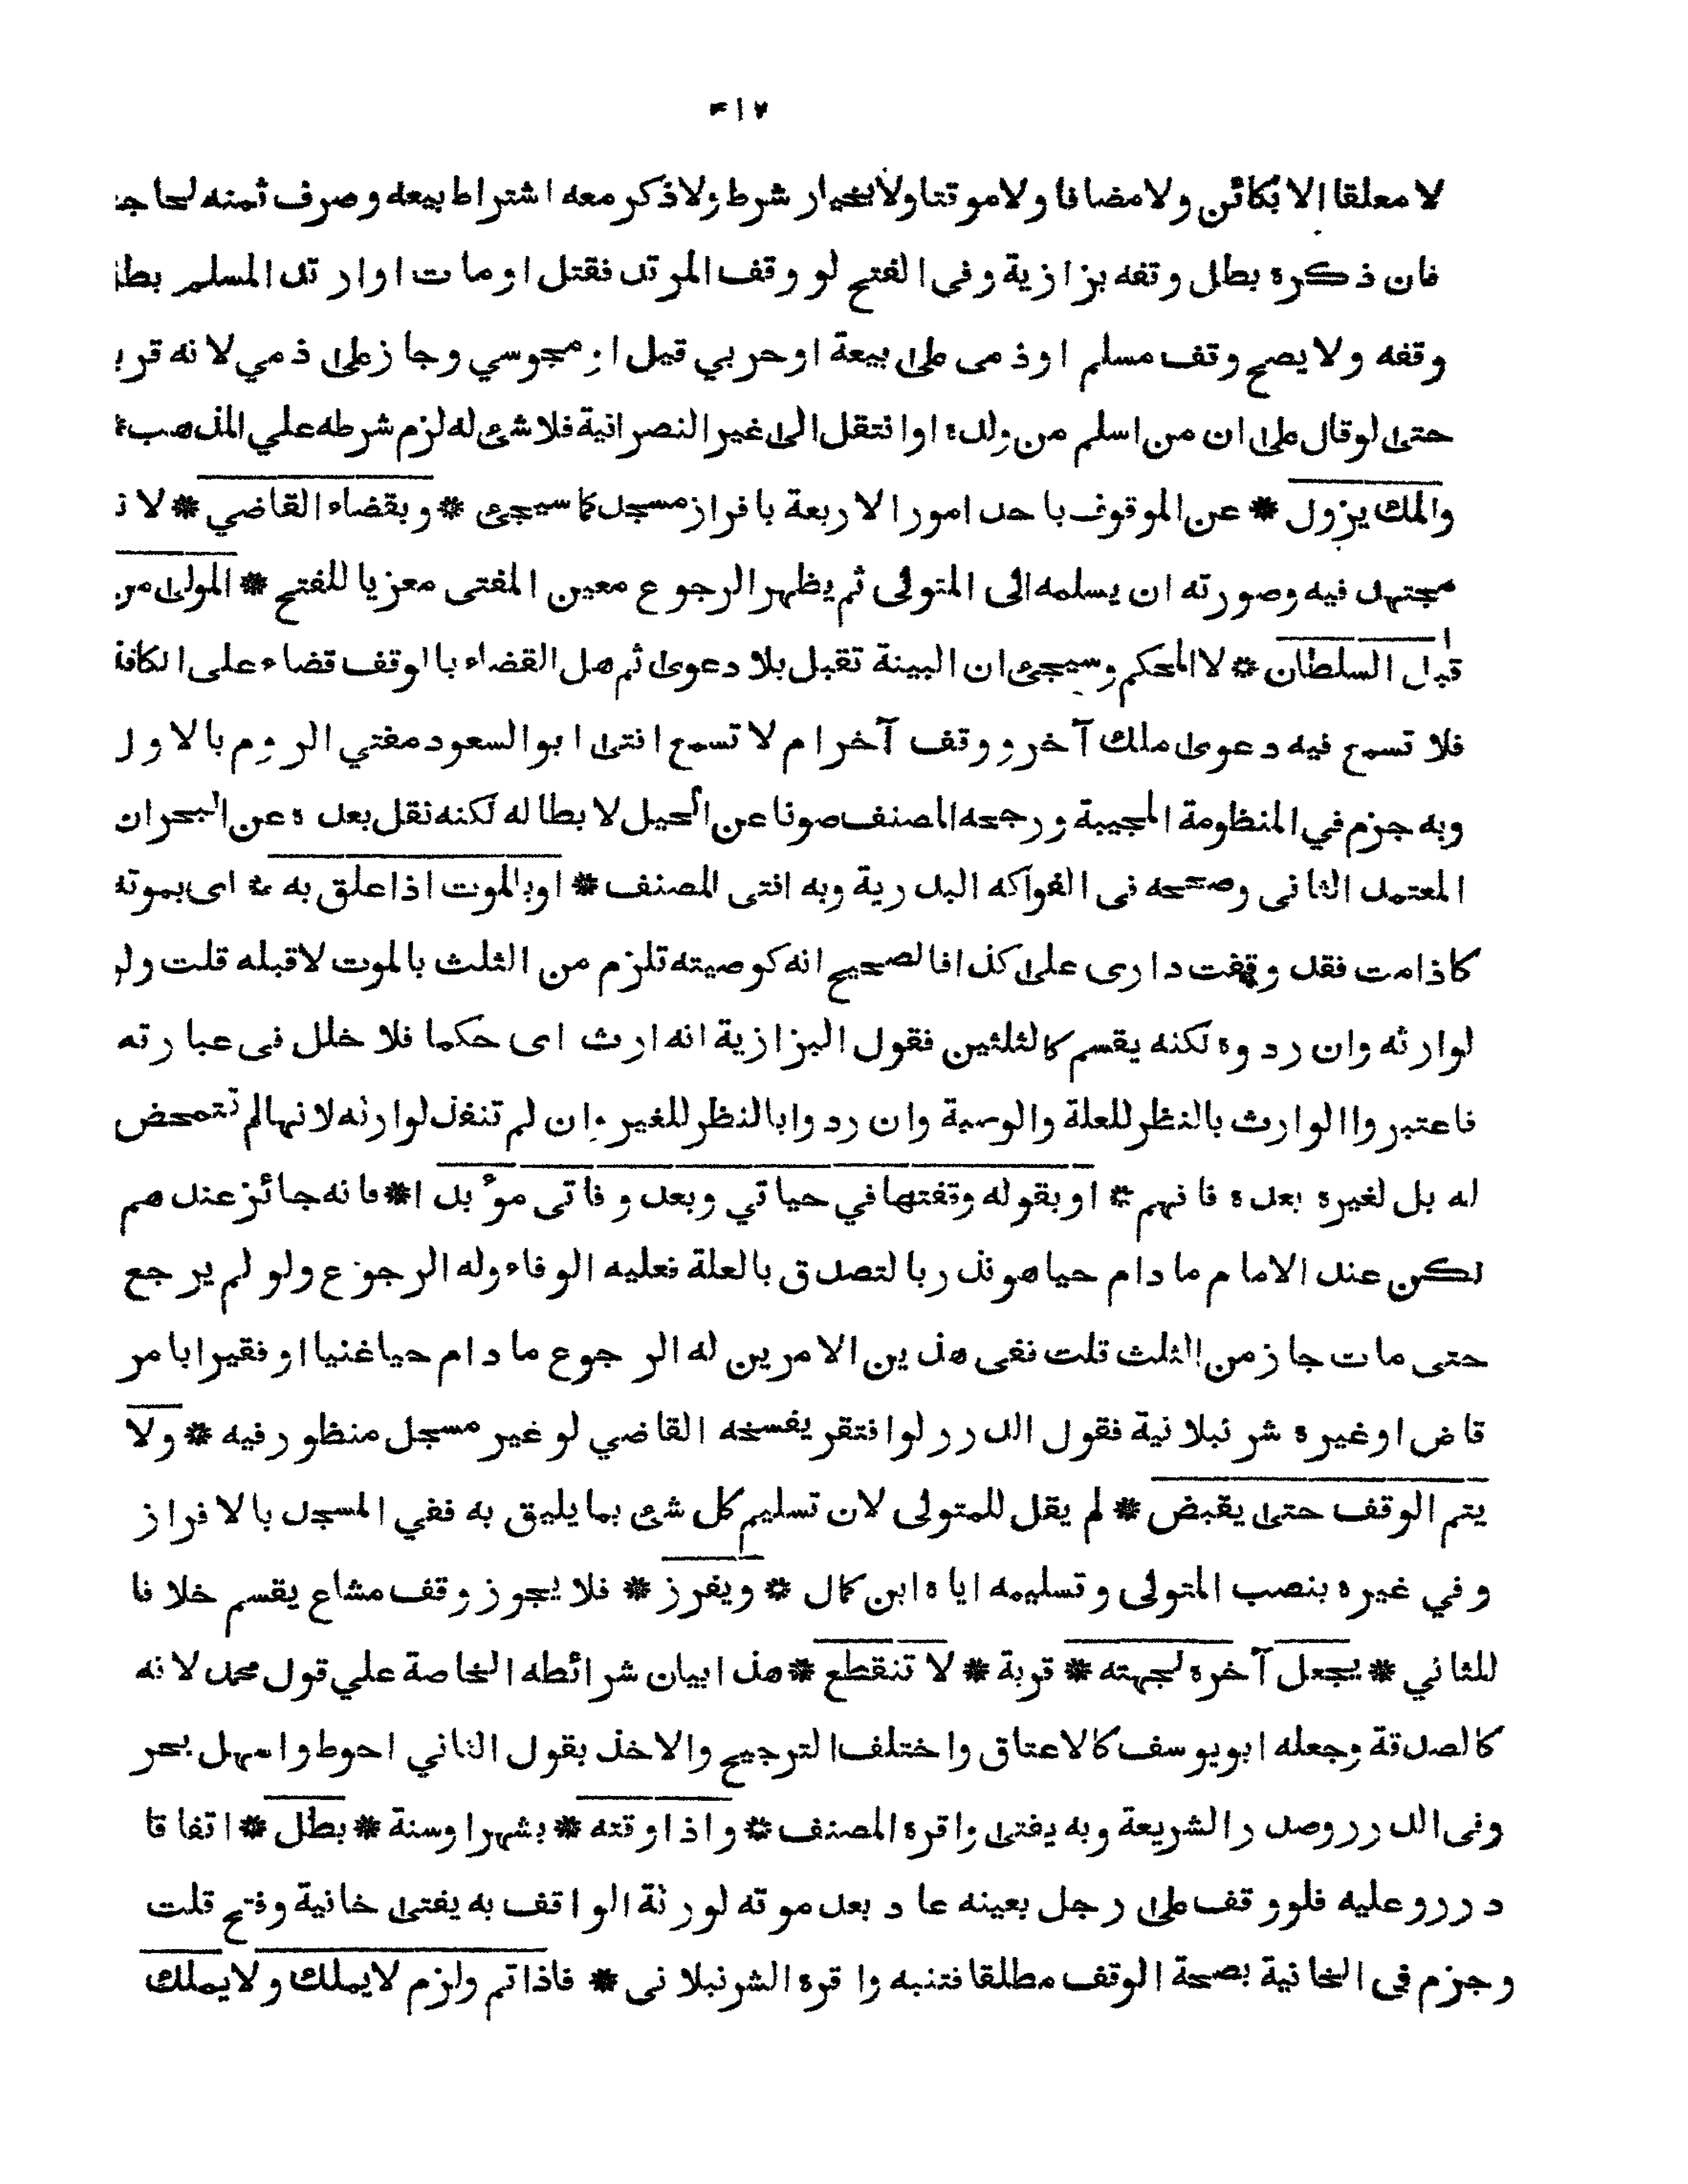 ٣١٧
لا معلقا الا بكائن ولا مضافا ولا موقتا ولا بخيار شرط ولا ذكر معه اشتراط بيعه وصرف ثمنه لحاجـ
فان ذكره بطل وقفه بزازية وفى الفتح لو وقف المرتد فقتل او مات او ارتد المسلم بطل
وقفه ولا يصح وقف مسلم او ذمى على بيعة او حربي قيل او مجوسي وجاز على ذمي لانه قربـ
حتى لو قال على ان من اسلم من ولده او انتقل الى غير النصرانية فلا شئ له لزم شرطه علي المذهب
والملك يزول * عن الموقوف باحد امور الاربعة بافراز مسجد كما سيجئ * وبقضاء القاضي * لانـ
مجتهد فيه وصورته ان يسلمه الى المتولى ثم يظهر الرجوع معين المفتى معزيا للفتح * المولى من
قبل السلطان * لا المحكم وسيجئ ان البينة تقبل بلا دعوى ثم هل القضاء بالوقف قضاء على الكافة
فلا تسمع فيه دعوى ملك آخر ووقف آخر ام لا تسمع افتى ابو السعود مفتي الروم بالاول
وبه جزم في المنظومة المحبية ورجحه المصنف صونا عن الحيل لابطاله لكنه نقل بعده عن البحر ان
المعتمد الثانى وصححه فى الفواكه البدرية وبه افتى المصنف * او بالموت اذا علق به * اى بموته
كاذا مت فقد وقفت دارى على كذا فالصحيح انه كوصيته تلزم من الثلث بالموت لا قبله قلت ولو
لوارثه وان ردوه لكنه يقسم كالثلثين فقول البزازية انه ارث اى حكما فلا خلل فى عبارته
فاعتبروا الوارث بالنظر للغلة والوصية وان ردوا بالنظر للغير وان لم تنفذ لوارثه لانها لم تتمحض
له بل لغيره بعده فافهم * او بقوله وقفتها في حياتي وبعد وفاتى مؤبدا * فانه جائز عندهم
لكن عند الامام ما دام حيا هو نذر بالتصدق بالغلة فعليه الوفاء وله الرجوع ولو لم يرجع
حتى مات جاز من الثلث قلت ففى هذين الامرين له الرجوع ما دام حيا غنيا او فقيرا بامر
قاض او غيره شرنبلانية فقول الدرر لو افتقر يفسخه القاضي لو غير مسجل منظور فيه * ولا
يتم الوقف حتى يقبض * لم يقل للمتولى لان تسليم كل شئ بما يليق به ففي المسجد بالافراز
وفي غيره بنصب المتولى وتسليمه اياه ابن كمال * ويفرز * فلا يجوز وقف مشاع يقسم خلافا
للثاني * يجعل آخره لجهته * قربة * لا تنقطع * هذا بيان شرائطه الخاصة علي قول محمد لانه
كالصدقة وجعله ابو يوسف كالاعتاق واختلف الترجيح والاخذ بقول الثاني احوط واسهل بحر
وفى الدرر وصدر الشريعة وبه يفتى واقره المصنف * واذا وقته * بشهر او سنة * بطل * اتفاقا
درر وعليه فلو وقف على رجل بعينه عاد بعد موته لورثة الواقف به يفتى خانية وفتح قلت
وجزم فى الخانية بصحة الوقف مطلقا فتنبه واقره الشرنبلانى * فاذا تم ولزم لا يملك ولا يملك